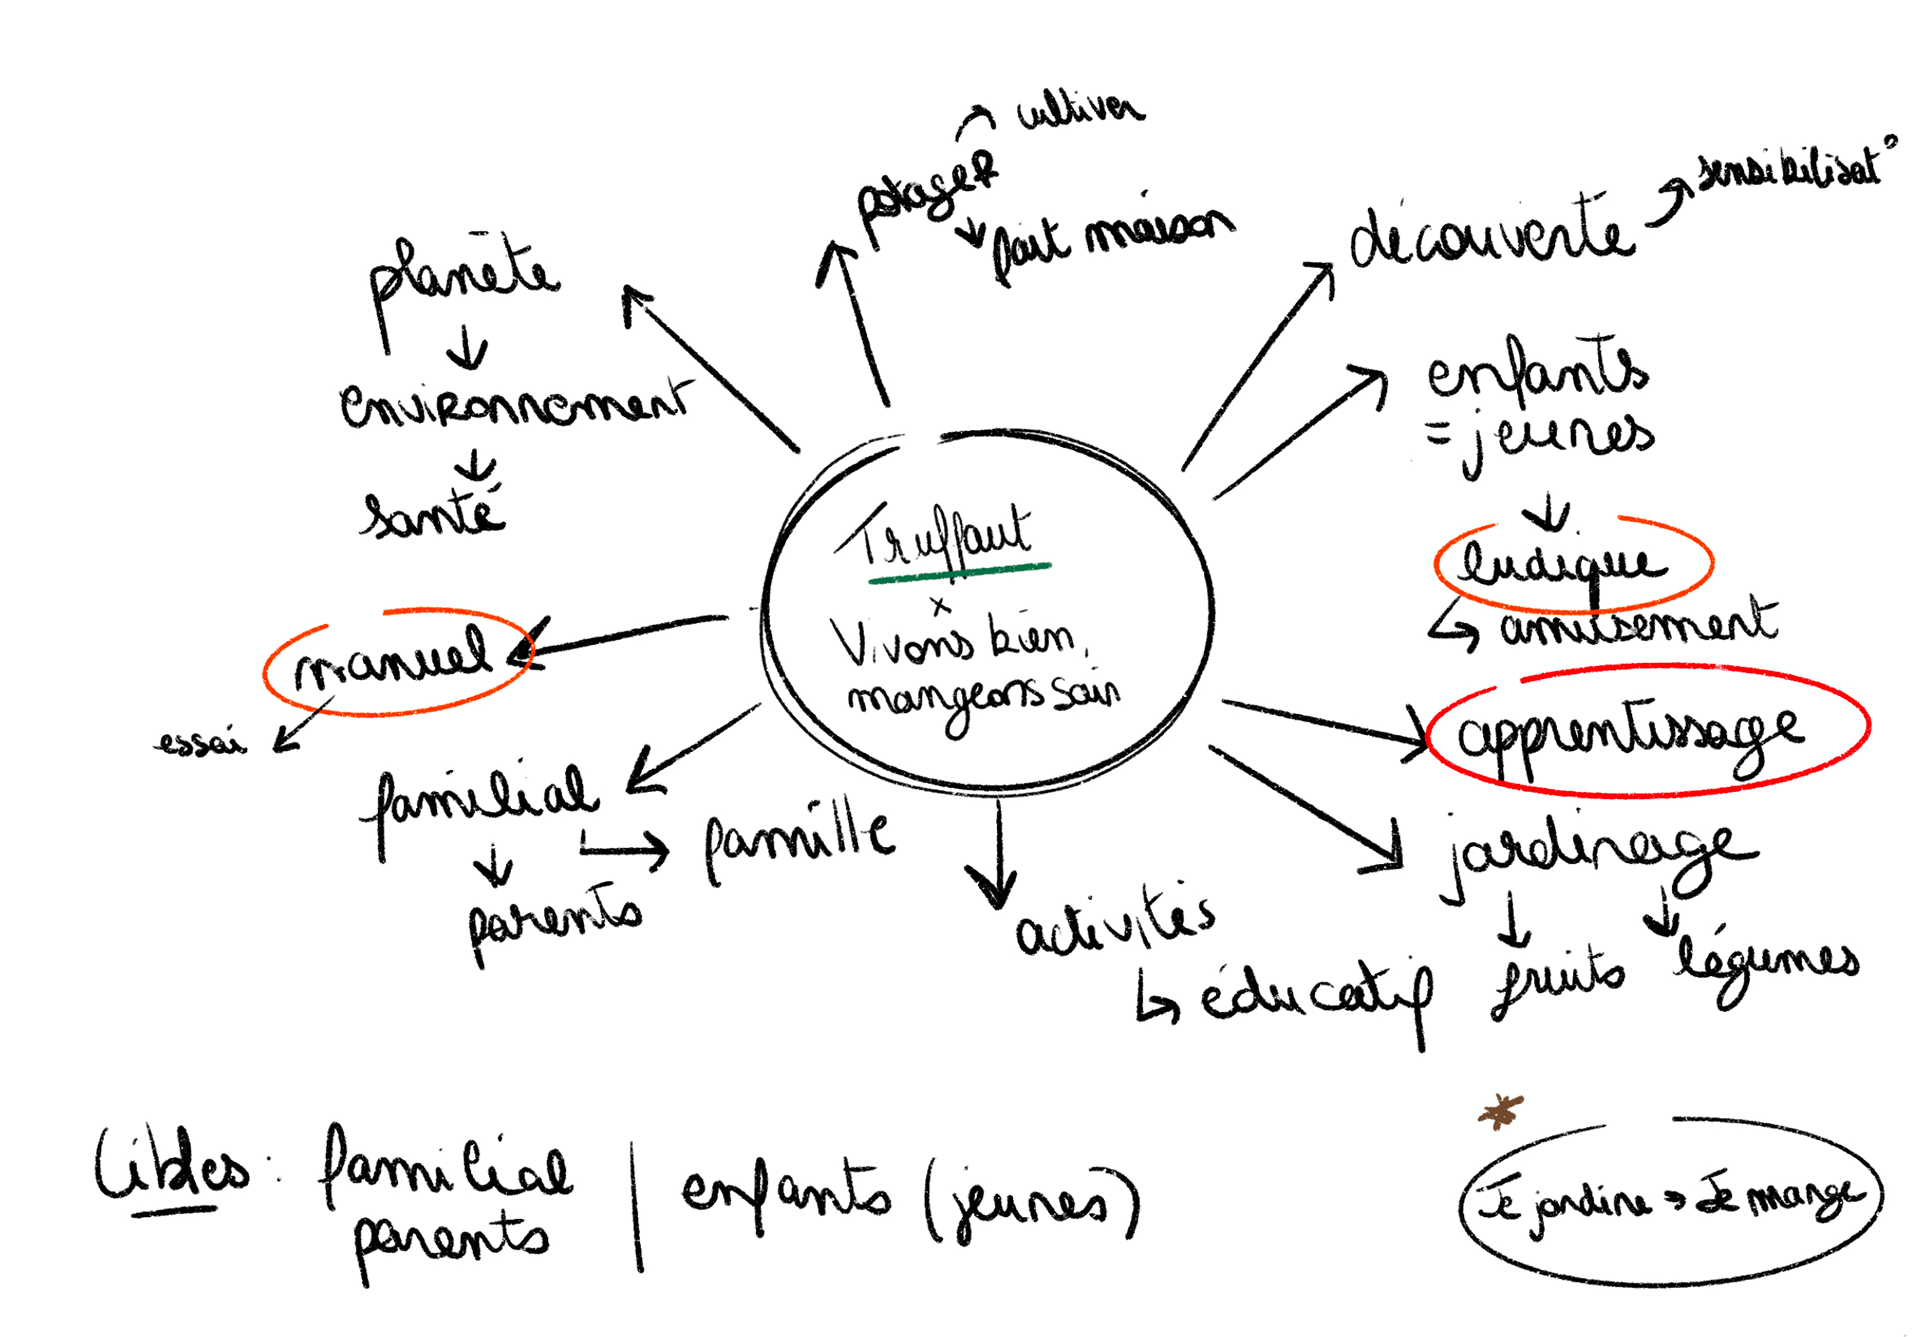 cultiver
potager
fait maison
sensibilisat°
découverte
planète
environnement
santé
enfants
= jeunes
ludique
amusement
Truffaut
x
Vivons bien,
mangeons sain
manuel
essai
apprentissage
familial
famille
parents
jardinage
fruits
légumes
activités
éducatif
Cibles : familial
parents
enfants (jeunes)
Je jardine → Je mange